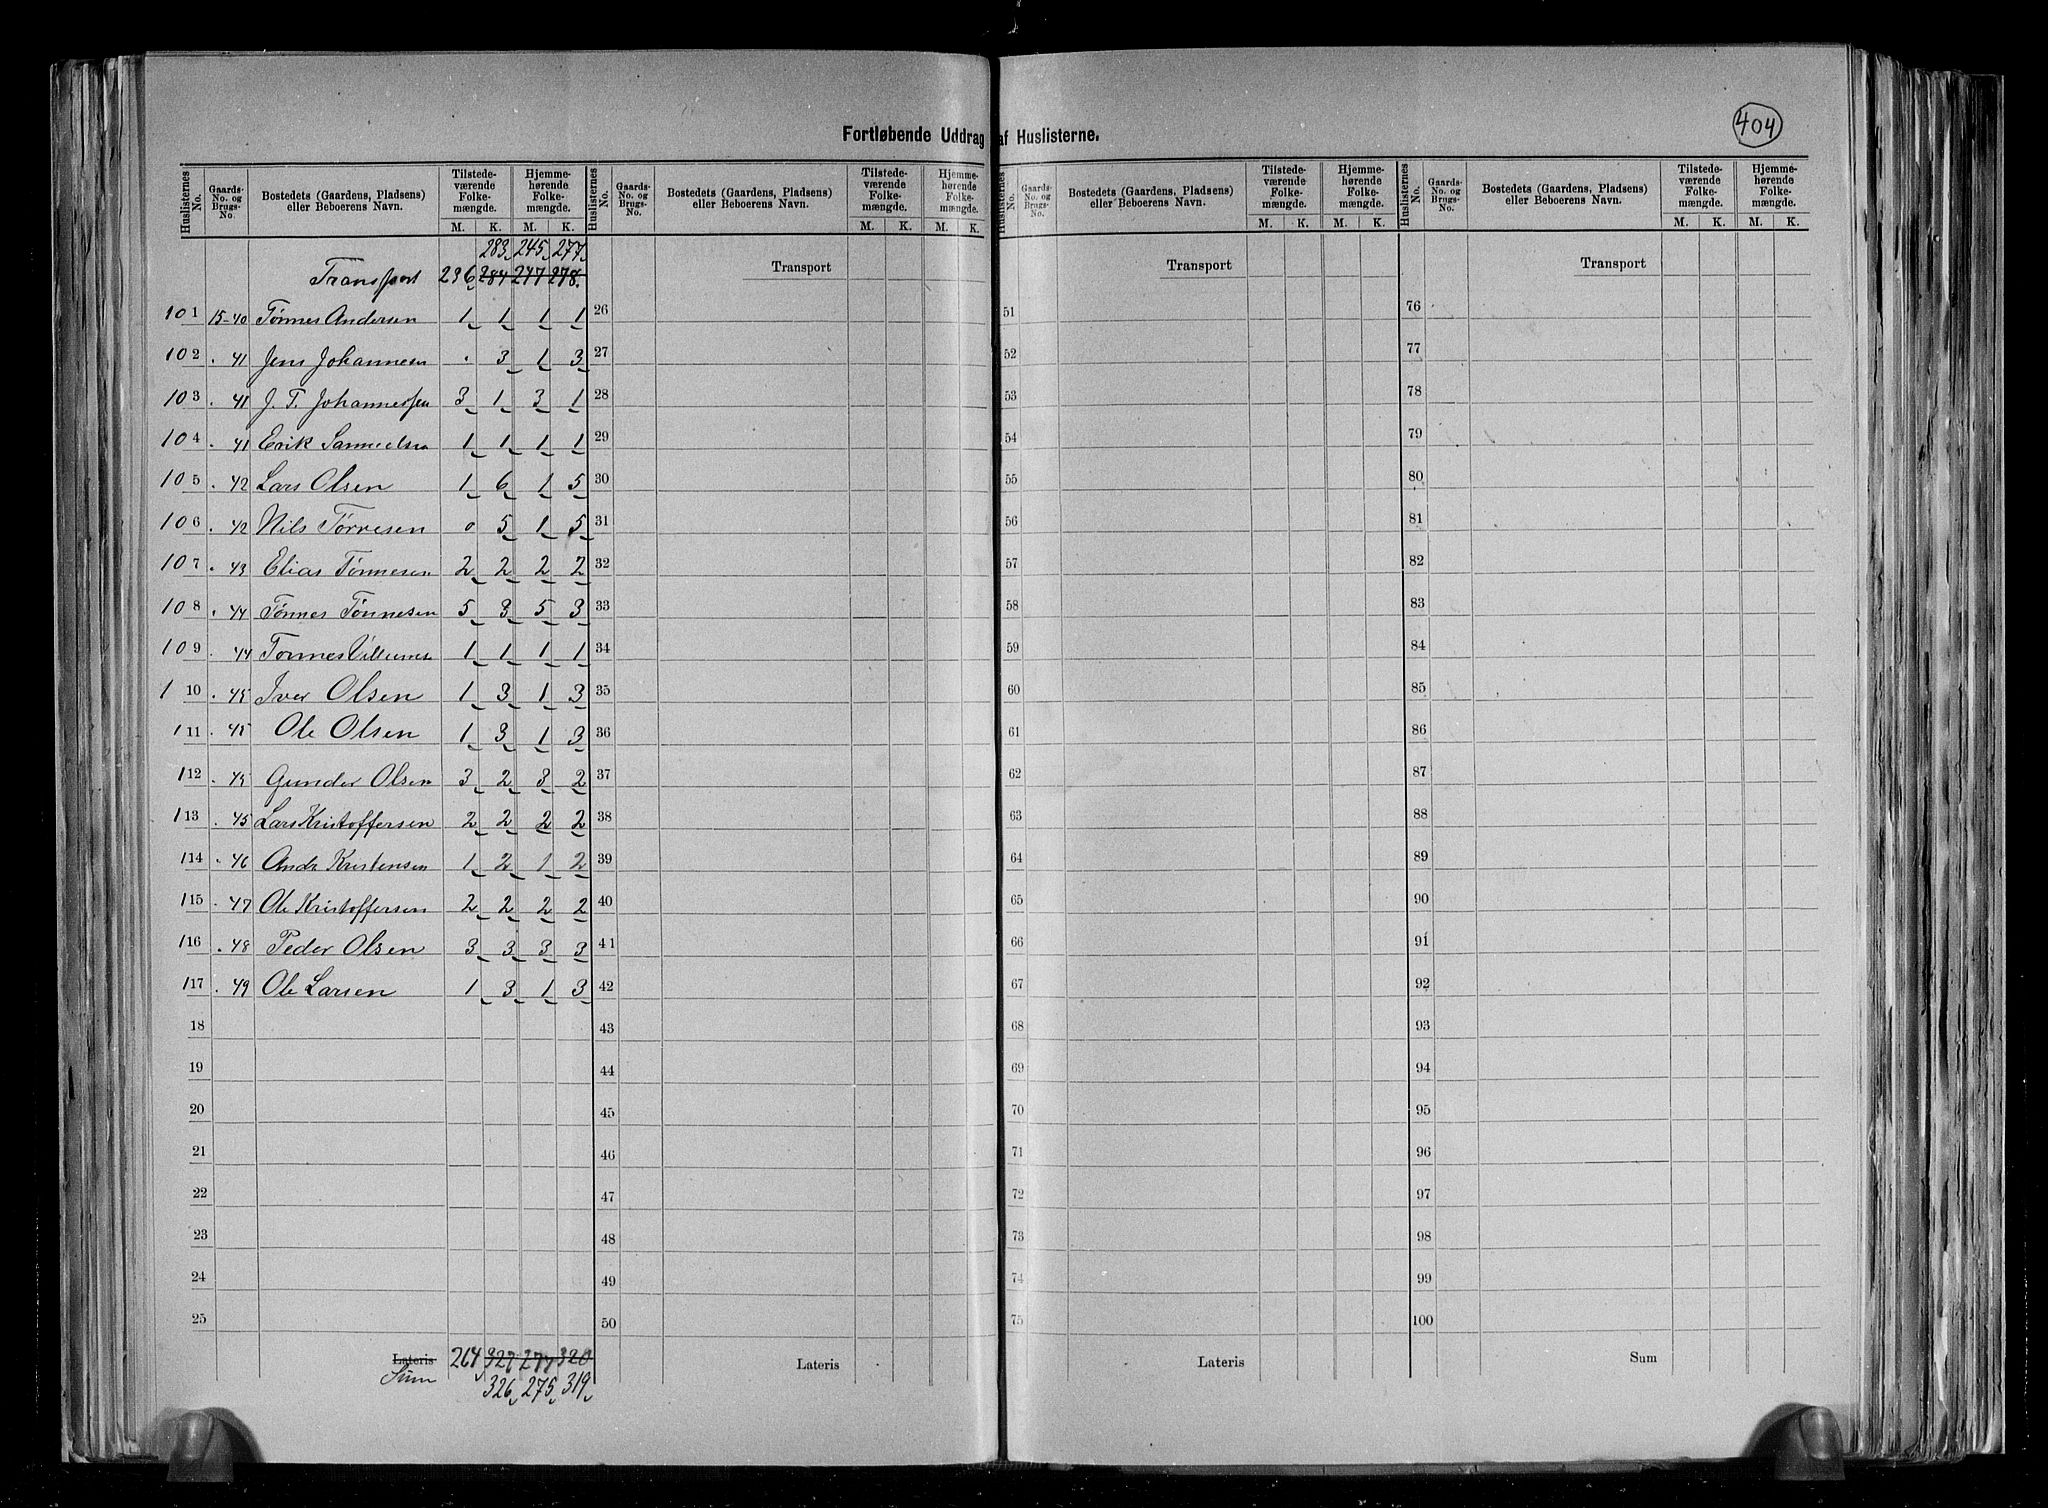 404
Fortløbende Uddrag af Huslisterne.
Huslisternes No. | Gaards-No. og Brugs-No. | Bostedets (Gaardens, Pladsens) eller Beboerens Navn. | Tilstedeværende Folkemængde. M. K. | Hjemmehørende Folkemængde. M. K.
Huslisternes No. | Gaards-No. og Brugs-No. | Bostedets (Gaardens, Pladsens) eller Beboerens Navn. | Tilstedeværende Folkemængde. M. K. | Hjemmehørende Folkemængde. M. K.
Huslisternes No. | Gaards-No. og Brugs-No. | Bostedets (Gaardens, Pladsens) eller Beboerens Navn. | Tilstedeværende Folkemængde. M. K. | Hjemmehørende Folkemængde. M. K.
Huslisternes No. | Gaards-No. og Brugs-No. | Bostedets (Gaardens, Pladsens) eller Beboerens Navn. | Tilstedeværende Folkemængde. M. K. | Hjemmehørende Folkemængde. M. K.
283 245 277
Transport 236 284 247 278 Transport Transport Transport
101 15-40 Tønnes Andersen 1 1 1 1 26 51 76
102 . 41 Jens Johannesen . 3 1 3 27 52 77
103 . 41 J. T. Johannessen 3 1 3 1 28 53 78
104 . 41 Erik Samuelsen 1 1 1 1 29 54 79
105 . 42 Lars Olsen 1 6 1 5 30 55 80
106 . 42 Nils Tørresen 0 5 1 5 31 56 81
107 . 43 Elias Tønnesen 2 2 2 2 32 57 82
108 . 44 Tønnes Tønnesen 5 3 5 3 33 58 83
109 . 44 Tønnes 1 1 1 1 34 59 84
110 . 45 Iver Olsen 1 3 1 3 35 60 85
111 . 45 Ole Olsen 1 3 1 3 36 61 86
112 . 45 Gunder Olsen 3 2 3 2 37 62 87
113 . 45 Lars Kristoffersen 2 2 2 2 38 63 88
114 . 46 Andr Kristensen 1 2 1 2 39 64 89
115 . 47 Ole Kristoffersen 2 2 2 2 40 65 90
116 . 48 Peder Olsen 3 3 3 3 41 66 91
117 . 49 Ole Larsen 1 3 1 3 42 67 92
18 43 68 93
19 44 69 94
20 45 70 95
21 46 71 96
22 47 72 97
23 48 73 98
24 49 74 99
25 50 75 100
Lateris 264 327 277 320 Lateris Lateris Sum
Sum 326 275 319